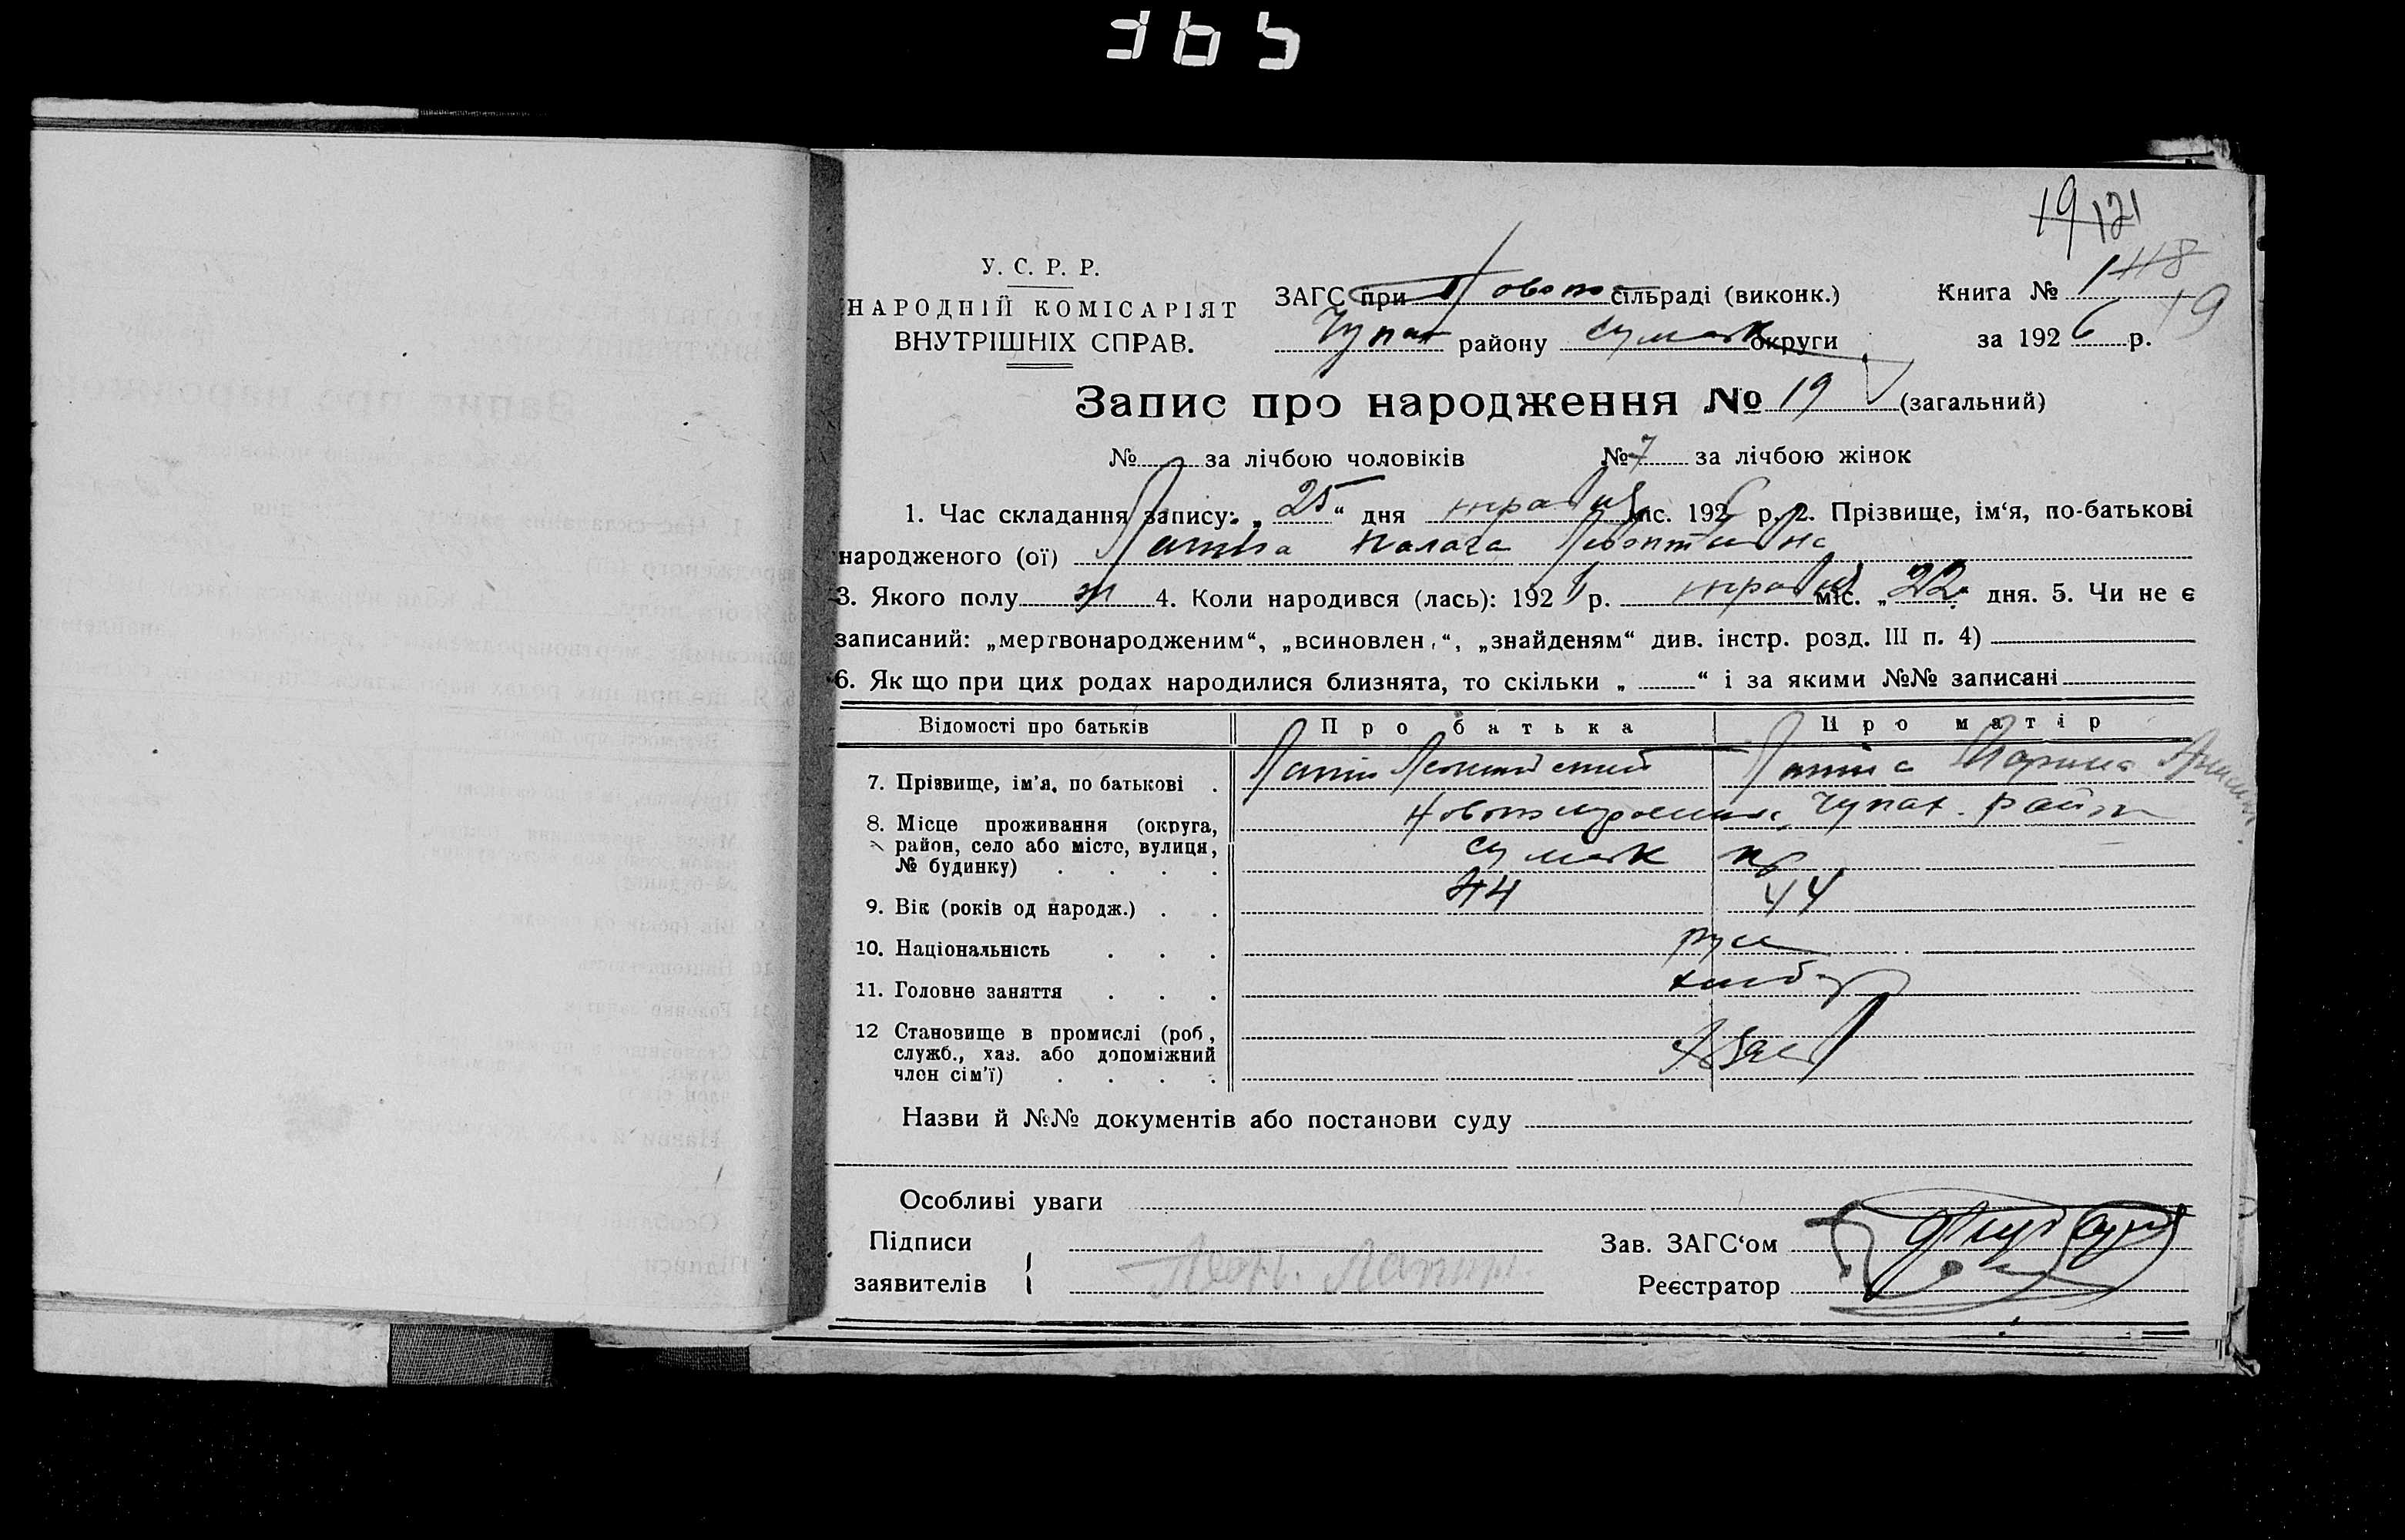 365
19 121
У. С. Р. Р.
НАРОДНІЙ КОМІСАРІЯТ
ВНУТРІШНІХ СПРАВ.
ЗАГС при сільраді (виконк.)
Чупах району Сумськ округи
Книга № 1 118
за 1926 р. 19
Запис про народження № 19 (загальний)
№ за лічбою чоловіків № 7 за лічбою жінок
1. Час складання запису: „25“ дня травня міс. 1926 р. 2. Прізвище, ім‘я, по-батькові
народженого (ої) Лапіна Палага
3. Якого полу ж 4. Коли народився (лась): 1926 р. травня міс. „22“ дня. 5. Чи не є
записаний: „мертвонародженим“, „всиновлен.“, „знайденям“ див. інстр. розд. III п. 4)
6. Як що при цих родах народилися близнята, то скільки „ “ і за якими №№ записані
Відомості про батьків Про батька Про матір
7. Прізвище, ім‘я, по батькові Лапін Лапіна Марина
8. Місце проживання (округа, Чупах. район
район, село або місто, вулиця, Сумськ
№ будинку)
9. Вік (років од народж.) 44 44
10. Національність русс
11. Головне заняття хлібор
12 Становище в промислі (роб,
служб., хаз. або допоміжний
член сім‘ї)
Назви й №№ документів або постанови суду
Особливі уваги
Підписи
заявителів Леон. Лапин.
Зав. ЗАГС‘ом
Реєстратор